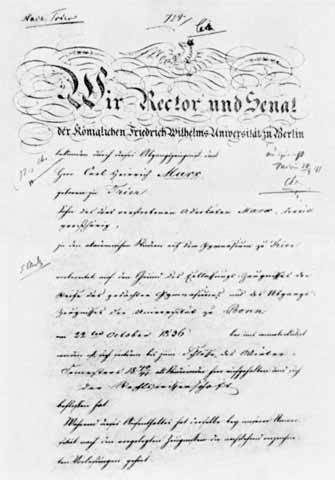 Nach Trier
728
Wir Rector und Senat
der Königlichen Friedrich Wilhelms Universität zu Berlin
bekennen durch dieses Abgangszeugniß daß
Herr Carl Heinrich Marx
geboren zu Trier
Sohn des dort verstorbenen Advokaten Marx,
zu den akademischen Studien auf dem Gymnasium zu Trier
vorbereitet auf den Grund des Entlassungs Zeugnisses der
Reife des gedachten Gymnasiums und des Abgangs
Zeugnisses der Universität zu Bonn
am 22ten October 1836 bei uns immatriculirt
worden ist, sich seitdem bis zum Schlusse des Winter
Semesters als Studirender hier aufgehalten und sich
der Rechtswissenschaft
beflissen hat.
Während dieses Aufenthaltes hat derselbe bei unserer Univer
sität nach den vorgelegten Zeugnissen die nachstehend verzeichne
ten Vorlesungen gehört.